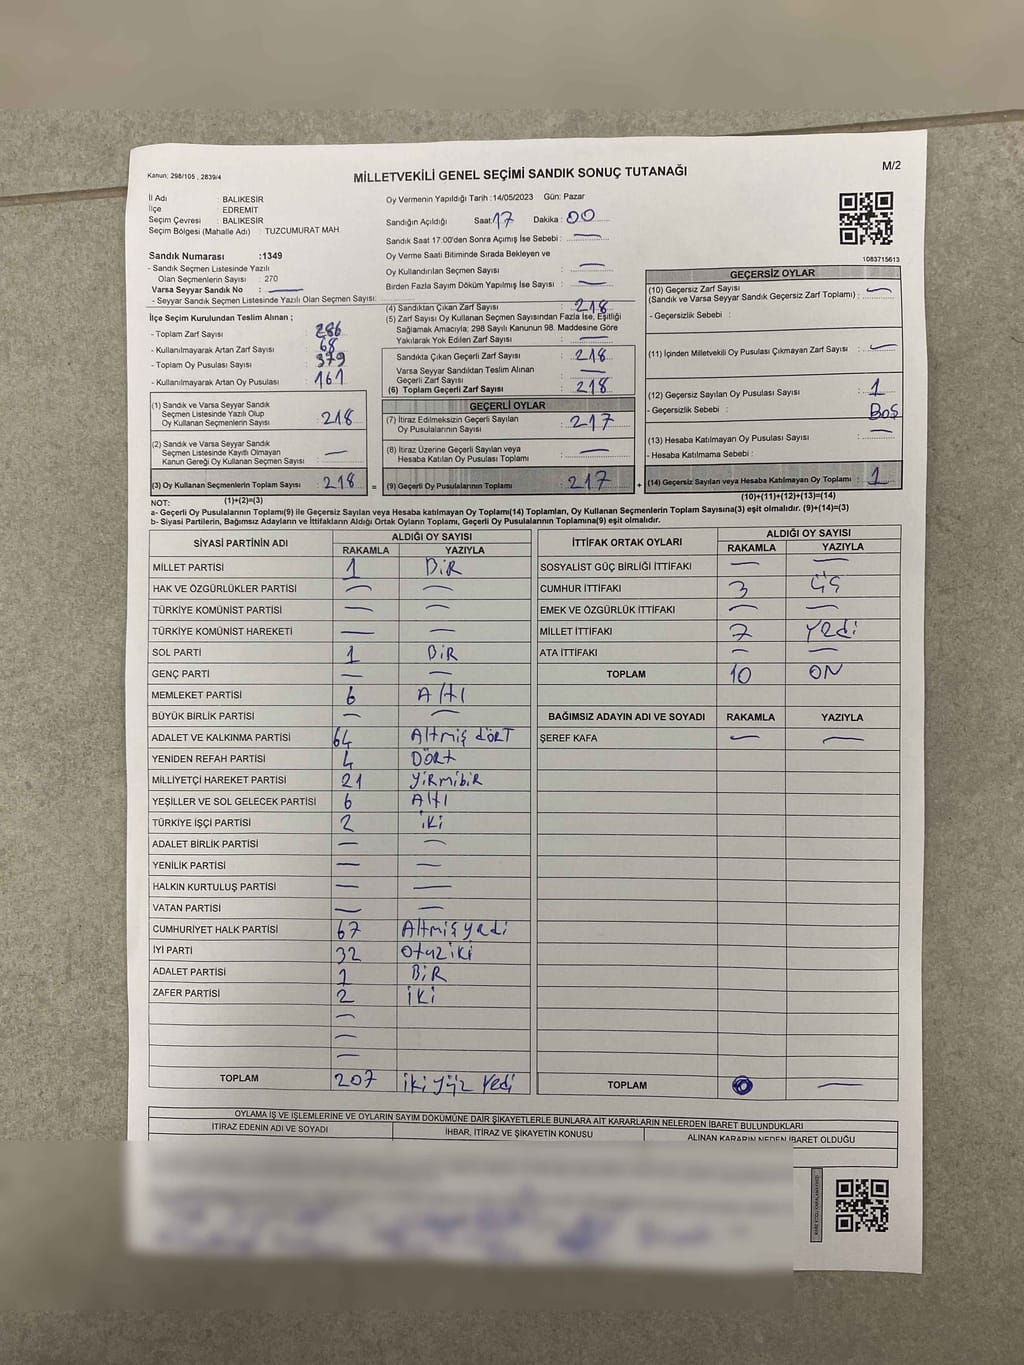 Kanun: 298/105 , 2839/4
MİLLETVEKİLİ GENEL SEÇİMİ SANDIK SONUÇ TUTANAĞI
M/2
İl Adı : BALIKESİR
İlçe : EDREMİT
Seçim Çevresi : BALIKESİR
Seçim Bölgesi (Mahalle Adı) : TUZCUMURAT MAH.
Oy Vermenin Yapıldığı Tarih :14/05/2023 Gün: Pazar
Sandığın Açıldığı Saat 17 Dakika : 00
Sandık Saat 17:00'den Sonra Açımış İse Sebebi : —
Oy Verme Saati Bitiminde Sırada Bekleyen ve
Oy Kullandırılan Seçmen Sayısı —
Birden Fazla Sayım Döküm Yapılmış İse Sayısı : —
1083715613
Sandık Numarası :1349
- Sandık Seçmen Listesinde Yazılı
Olan Seçmenlerin Sayısı : 270
Varsa Seyyar Sandık No : —
- Seyyar Sandık Seçmen Listesinde Yazılı Olan Seçmen Sayısı:
İlçe Seçim Kurulundan Teslim Alınan ;
- Toplam Zarf Sayısı : 286
- Kullanılmayarak Artan Zarf Sayısı : 68
- Toplam Oy Pusulası Sayısı : 379
- Kullanılmayarak Artan Oy Pusulası : 161
(1) Sandık ve Varsa Seyyar Sandık
Seçmen Listesinde Yazılı Olup
Oy Kullanan Seçmenlerin Sayısı : 218
(2) Sandık ve Varsa Seyyar Sandık
Seçmen Listesinde Kayıtlı Olmayan
Kanun Gereği Oy Kullanan Seçmen Sayısı : —
(3) Oy Kullanan Seçmenlerin Toplam Sayısı : 218 =
(1)+(2)=(3)
(4) Sandıktan Çıkan Zarf Sayısı : 218
(5) Zarf Sayısı Oy Kullanan Seçmen Sayısından Fazla İse, Eşitliği
Sağlamak Amacıyla; 298 Sayılı Kanunun 98. Maddesine Göre
Yakılarak Yok Edilen Zarf Sayısı : —
Sandıkta Çıkan Geçerli Zarf Sayısı : 218
Varsa Seyyar Sandıktan Teslim Alınan
Geçerli Zarf Sayısı : —
(6) Toplam Geçerli Zarf Sayısı : 218
GEÇERLİ OYLAR
(7) İtiraz Edilmeksizin Geçerli Sayılan
Oy Pusulalarının Sayısı : 217
(8) İtiraz Üzerine Geçerli Sayılan veya
Hesaba Katılan Oy Pusulası Toplamı : —
(9) Geçerli Oy Pusulalarının Toplamı : 217 +
GEÇERSİZ OYLAR
(10) Geçersiz Zarf Sayısı
(Sandık ve Varsa Seyyar Sandık Geçersiz Zarf Toplamı) : —
- Geçersizlik Sebebi :
(11) İçinden Milletvekili Oy Pusulası Çıkmayan Zarf Sayısı : —
(12) Geçersiz Sayılan Oy Pusulası Sayısı : 1
- Geçersizlik Sebebi : Boş
(13) Hesaba Katılmayan Oy Pusulası Sayısı : —
- Hesaba Katılmama Sebebi :
(14) Geçersiz Sayılan veya Hesaba Katılmayan Oy Toplamı : 1
(10)+(11)+(12)+(13)=(14)
NOT:
a- Geçerli Oy Pusulalarının Toplamı(9) ile Geçersiz Sayılan veya Hesaba katılmayan Oy Toplamı(14) Toplamları, Oy Kullanan Seçmenlerin Toplam Sayısına(3) eşit olmalıdır. (9)+(14)=(3)
b- Siyasi Partilerin, Bağımsız Adayların ve İttifakların Aldığı Ortak Oyların Toplamı, Geçerli Oy Pusulalarının Toplamına(9) eşit olmalıdır.
SİYASİ PARTİNİN ADI ALDIĞI OY SAYISI
RAKAMLA YAZIYLA
MİLLET PARTİSİ 1 BİR
HAK VE ÖZGÜRLÜKLER PARTİSİ — —
TÜRKİYE KOMÜNİST PARTİSİ — —
TÜRKİYE KOMÜNİST HAREKETİ — —
SOL PARTİ 1 BİR
GENÇ PARTİ — —
MEMLEKET PARTİSİ 6 Altı
BÜYÜK BİRLİK PARTİSİ — —
ADALET VE KALKINMA PARTİSİ 64 Altmiş dört
YENİDEN REFAH PARTİSİ 4 Dört
MİLLİYETÇİ HAREKET PARTİSİ 21 yirmibir
YEŞİLLER VE SOL GELECEK PARTİSİ 6 Altı
TÜRKİYE İŞÇİ PARTİSİ 2 iki
ADALET BİRLİK PARTİSİ — —
YENİLİK PARTİSİ — —
HALKIN KURTULUŞ PARTİSİ — —
VATAN PARTİSİ — —
CUMHURİYET HALK PARTİSİ 67 Altmiş yedi
İYİ PARTİ 32 otuz iki
ADALET PARTİSİ 1 BİR
ZAFER PARTİSİ 2 iki
—
—
—
TOPLAM 207 iki yüz yedi
İTTİFAK ORTAK OYLARI ALDIĞI OY SAYISI
RAKAMLA YAZIYLA
SOSYALİST GÜÇ BİRLİĞİ İTTİFAKI — —
CUMHUR İTTİFAKI 3 üç
EMEK VE ÖZGÜRLÜK İTTİFAKI — —
MİLLET İTTİFAKI 7 yedi
ATA İTTİFAKI — —
TOPLAM 10 ON
BAĞIMSIZ ADAYIN ADI VE SOYADI RAKAMLA YAZIYLA
ŞEREF KAFA — —
TOPLAM 0 —
OYLAMA İŞ VE İŞLEMLERİNE VE OYLARIN SAYIM DÖKÜMÜNE DAİR ŞİKAYETLERLE BUNLARA AİT KARARLARIN NELERDEN İBARET BULUNDUKLARI
İTİRAZ EDENİN ADI VE SOYADI İHBAR, İTİRAZ VE ŞİKAYETİN KONUSU ALINAN KARARIN NEDEN İBARET OLDUĞU